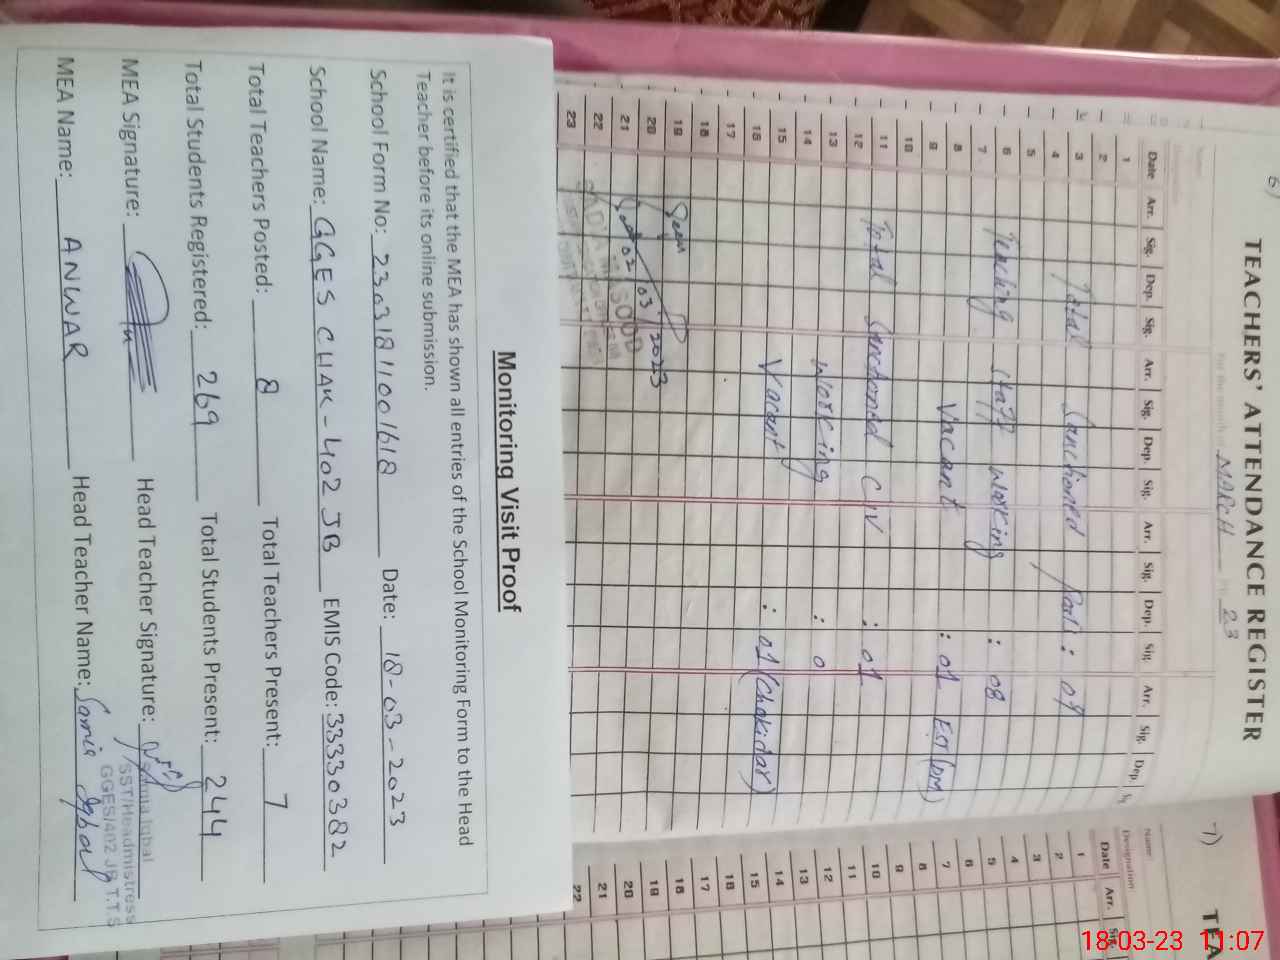 6)
TEACHERS' ATTENDANCE REGISTER
For the month of MARCH 23
Date Arr. Sig. Dep. Sig. Arr. Sig. Dep. Sig. Arr. Sig. Dep. Sig. Arr. Sig. Dep.
1
2
3 Total Sanctioned Post : 09
4
5
6 Teaching staff working : 08
7
8 Vacant : 01 EST (PM)
9
10
11 Total Sanctioned C IV : 01
12
13 Working : 0
14
15 Vacant : 01 (Chokidar)
16
17
18
19 Seen
20
21 02/03/2023
22
23
Monitoring Visit Proof
It is certified that the MEA has shown all entries of the School Monitoring Form to the Head
Teacher before its online submission.
School Form No: 23031811001618 Date: 18-03-2023
School Name: GGES CHAK-402 JB EMIS Code: 33330382
Total Teachers Posted: 8 Total Teachers Present: 7
Total Students Registered: 269 Total Students Present: 244
MEA Signature: Head Teacher Signature:
Iqbal
SST/Headmistress
GGES/402 JB T.T.S
MEA Name: ANWAR Head Teacher Name: Samia Iqbal
7)
TEA
Name
Designation
Date Arr. Sig.
1
2
3
4
5
6
7
8
9
10
11
12
13
14
15
16
17
18
19
20
21
22
18-03-23 11:07